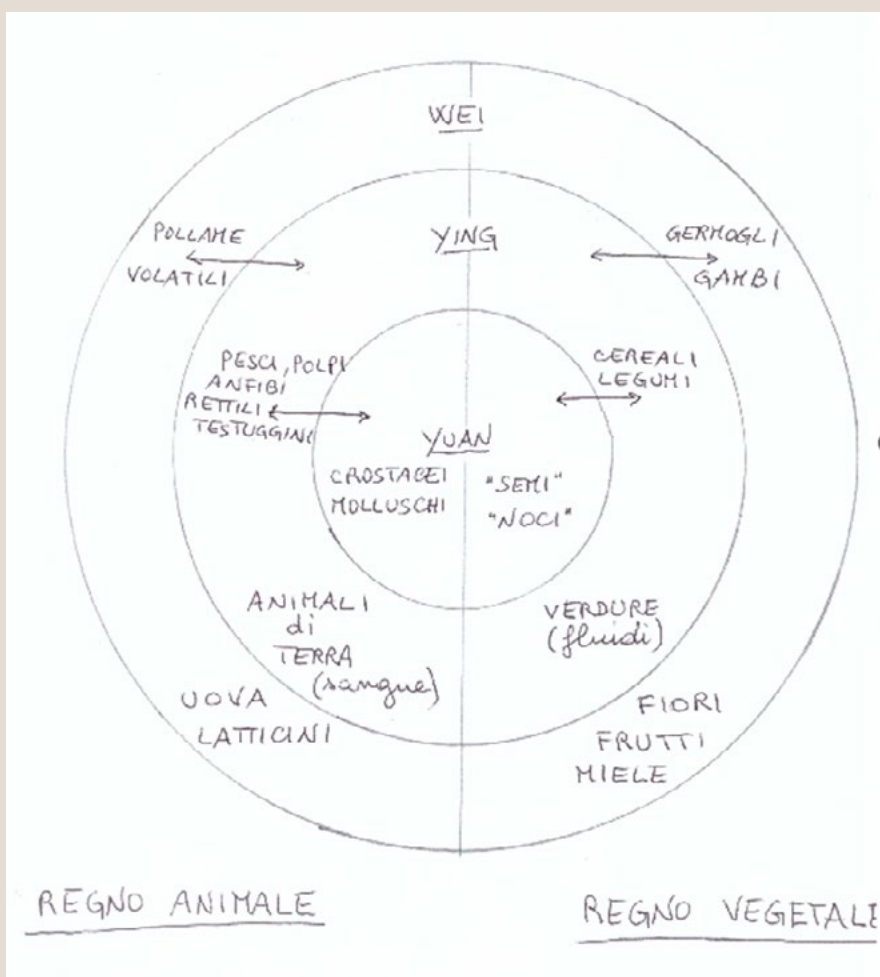 WEI
POLLAME
VOLATILI
YING
GERMOGLI
GAMBI
PESCI, POLPI
ANFIBI
RETTILI
TESTUGGINI
CEREALI
LEGUMI
YUAN
CROSTACEI
MOLLUSCHI
"SEMI"
"NOCI"
ANIMALI
di
TERRA
(sangue)
VERDURE
(fluidi)
UOVA
LATTICINI
FIORI
FRUTTI
MIELE
REGNO ANIMALE
REGNO VEGETALE